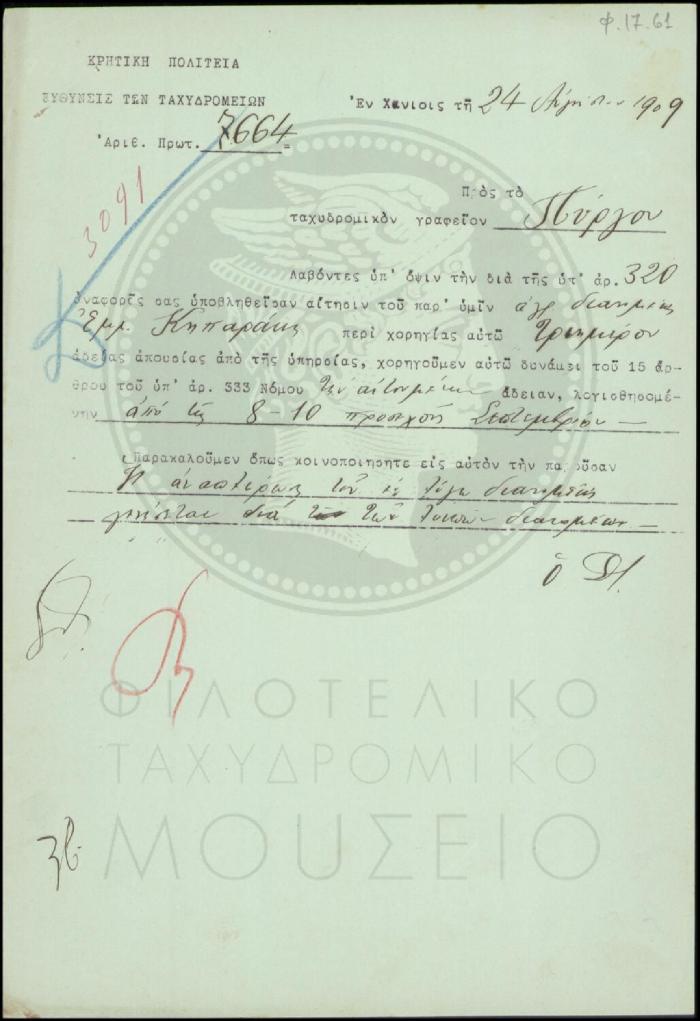 φ.17.61
ΚΡΗΤΙΚΗ ΠΟΛΙΤΕΙΑ
ΕΥΘΥΝΣΙΣ ΤΩΝ ΤΑΧΥΔΡΟΜΕΙΩΝ
Ἐν Χανίοις τῇ 24 1909
Ἀριθ. Πρωτ. 7664
3091
Πρὸς τὸ
ταχυδρομικὸν γραφεῖον Πύργου
Λαβόντες ὑπ' ὄψιν τὴν διὰ τῆς ὑπ' ἀρ. 320
ἀναφορᾶς σας ὑποβληθεῖσαν αἴτησιν τοῦ παρ' ὑμῖν ἀγρ
Ἐμμ. Κηπαράκη περὶ χορηγίας αὐτῷ τριημέρου
ἀδείας ἀπουσίας ἀπὸ τῆς ὑπηρσίας, χορηγοῦμεν αὐτῷ δυνάμει τοῦ 15 ἄρ-
θρου τοῦ ὑπ' ἀρ. 333 Νόμου τὴν αἰτουμένην ἄδειαν, λογισθησομέ-
νην ἀπὸ τῆς 8-10 προσεχοῦς Σεπτεμβρίου
Παρακαλοῦμεν ὅπως κοινοποιήσητε εἰς αὐτὸν τὴν παροῦσαν
Ἡ τοῦ ἐν λόγῳ
γενήσεται διὰ τῶν
ὁ
ΦΙΛΟΤΕΛΙΚΟ
ΤΑΧΥΔΡΟΜΙΚΟ
ΜΟΥΣΕΙΟ